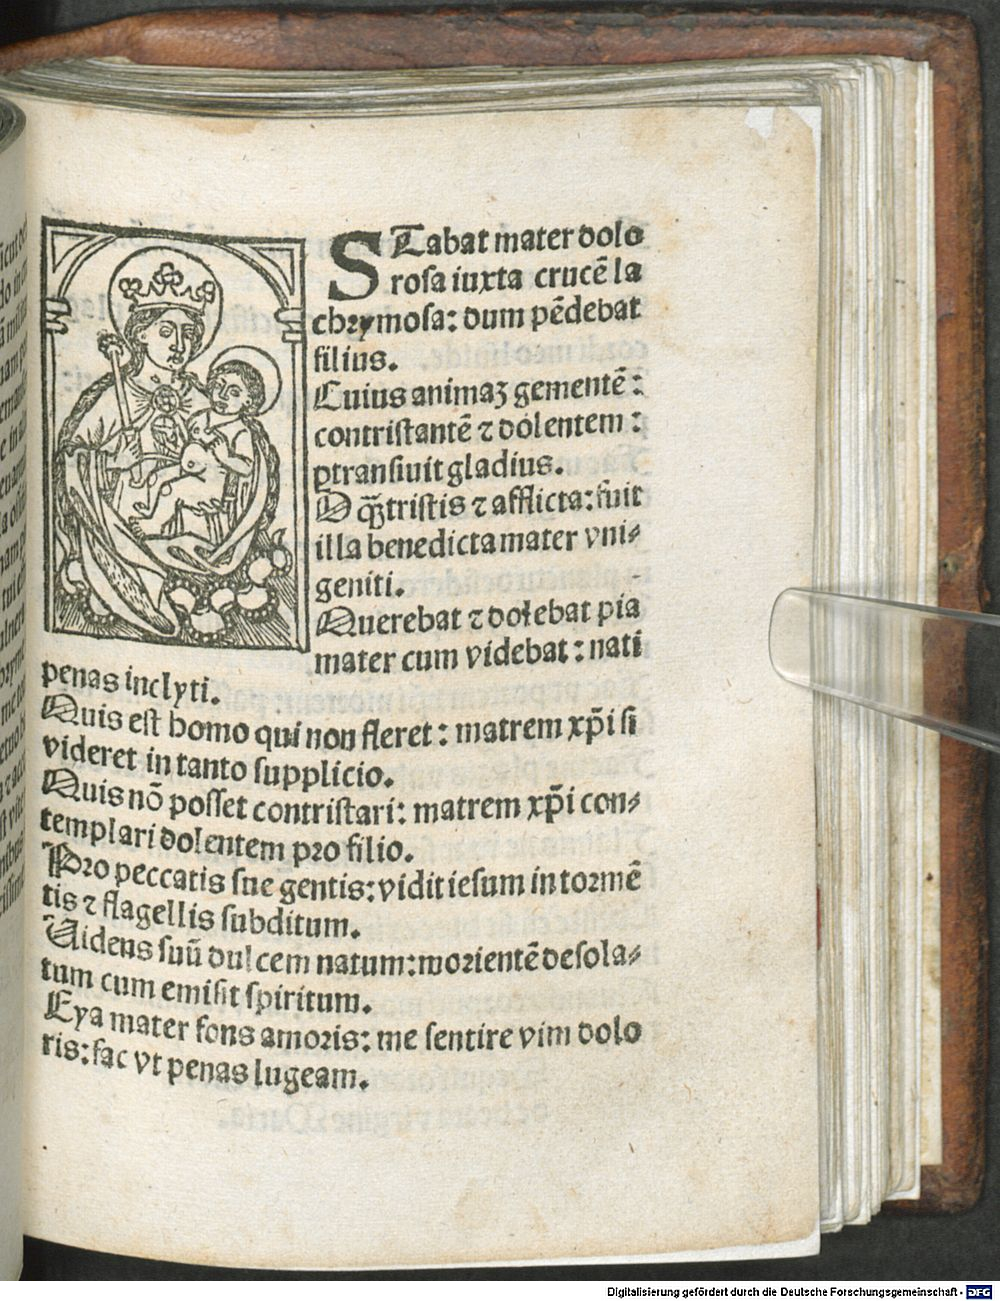 STabat mater dolo
rosa iuxta crucē la
chrymosa: dum pēdebat
filius.
Cuius animaʒ gementē:
contristantē ⁊ dolentem:
ꝑtransiuit gladius.
O ꝙ̃ tristis ⁊ afflicta: fuit
illa benedicta mater vni⸗
geniti.
Querebat ⁊ dolebat pia
mater cum videbat: nati
penas inclyti.
Quis est homo qui non fleret: matrem xp̄i si
videret in tanto supplicio.
Quis nō posset contristari: matrem xp̄i con⸗
templari dolentem pro filio.
Pro peccatis sue gentis: vidit iesum in tormē
tis ⁊ flagellis subditum.
Uidens suū dulcem natum: morientē desola⸗
tum cum emisit spiritum.
Eya mater fons amoris: me sentire vim dolo
ris: fac vt penas lugeam.
Digitalisierung gefördert durch die Deutsche Forschungsgemeinschaft - DFG